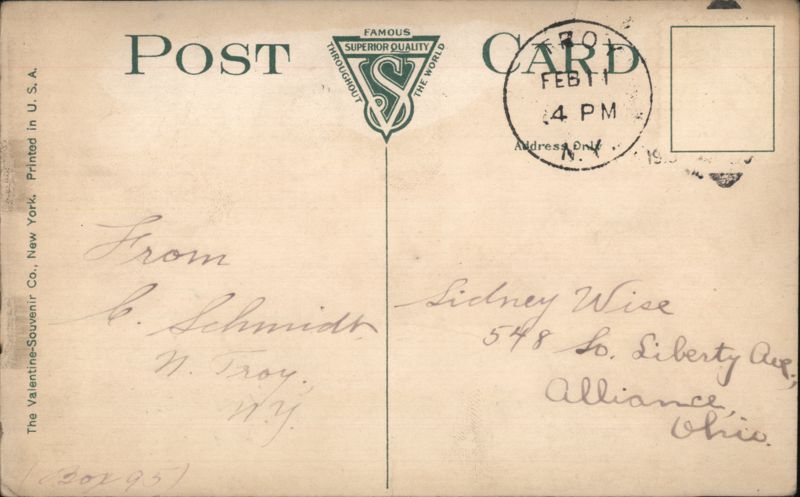 POST CARD
FAMOUS
SUPERIOR QUALITY
THROUGHOUT THE WORLD
VS
TROY
FEB 11
4 PM
N.Y.
Address Only
The Valentine-Souvenir Co., New York. Printed in U. S. A.
From
C. Schmidt,
N. Troy,
N.Y.
(Box 95)
Sidney Wise
548 So. Liberty Ave.,
Alliance,
Ohio.